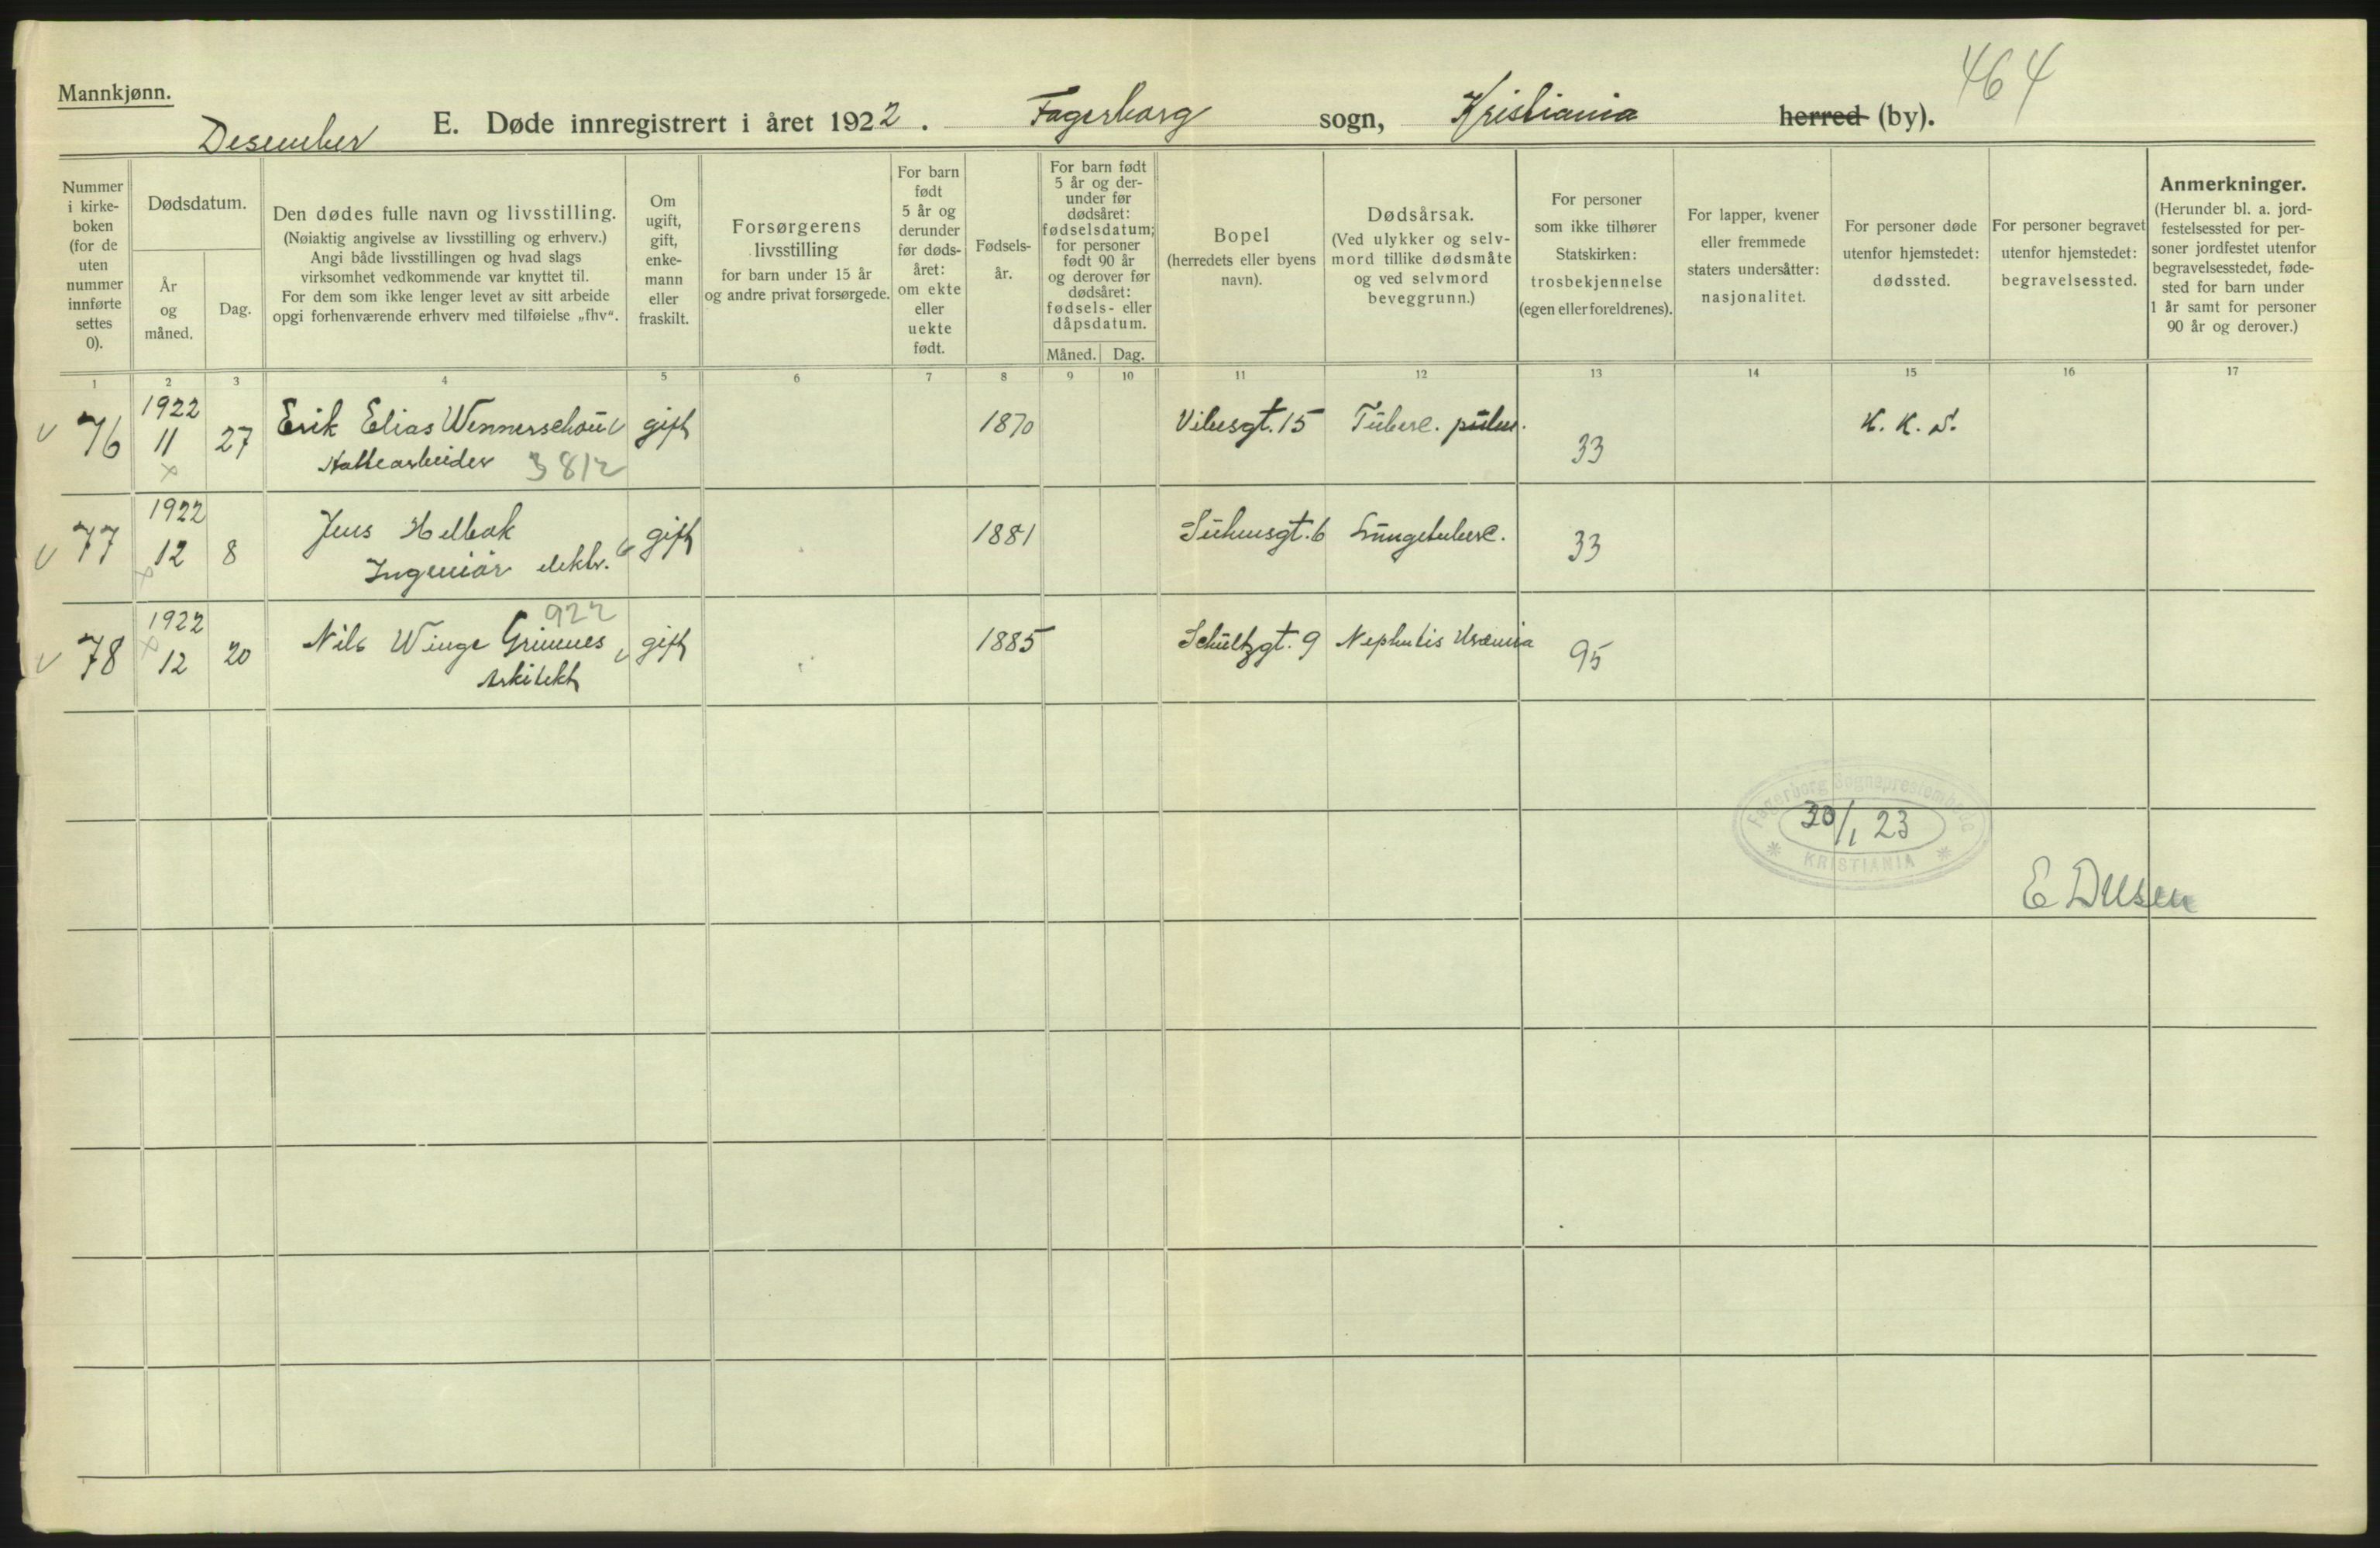 464
Mannkjønn.
Desember E. Døde innregistrert i året 1922. Fagerborg sogn, Kristiania herred (by).
Nummer i kirkeboken (for de uten nummer innførte settes 0).
Dødsdatum.
År og måned.
Dag.
Den dødes fulle navn og livsstilling.
(Nøiaktig angivelse av livsstilling og erhverv.)
Angi både livsstillingen og hvad slags
virksomhet vedkommende var knyttet til.
For dem som ikke lenger levet av sitt arbeide
opgi forhenværende erhverv med tilføielse „fhv“.
Om ugift, gift, enkemann eller fraskilt.
Forsørgerens
livsstilling
for barn under 15 år
og andre privat forsørgede.
For barn født 5 år og derunder før dødsåret: om ekte eller uekte født.
Fødselsår.
For barn født 5 år og derunder før dødsåret: fødselsdatum; for personer født 90 år og derover før dødsåret: fødsels- eller dåpsdatum.
Måned. Dag.
Bopel
(herredets eller byens
navn).
Dødsårsak.
(Ved ulykker og selvmord tillike dødsmåte
og ved selvmord
beveggrunn.)
For personer
som ikke tilhører
Statskirken:
trosbekjennelse
(egen eller foreldrenes).
For lapper, kvener
eller fremmede
staters undersåtter:
nasjonalitet.
For personer døde
utenfor hjemstedet:
dødssted.
For personer begravet
utenfor hjemstedet:
begravelsessted.
Anmerkninger.
(Herunder bl. a. jordfestelsessted for personer jordfestet utenfor
begravelsesstedet, fødested for barn under
1 år samt for personer
90 år og derover.)
1 2 3 4 5 6 7 8 9 10 11 12 13 14 15 16 17
76 1922 11 27 Erik Elias gift 1870 Vibesgt. 15 Tuberc. pulm. 33 K. K. S.
3812
77 1922 12 8 Jens Helbak gift 1881 Suhmsgt. 6 Lungetuberc. 33
Ingeniør elektr.
922
78 1922 12 20 Nils Winge Grimnes gift 1885 Schultzgt. 9 Nephritis Uræmia 95
Arkitekt
Fagerborg Sogneprestembede
30/1 23
KRISTIANIA